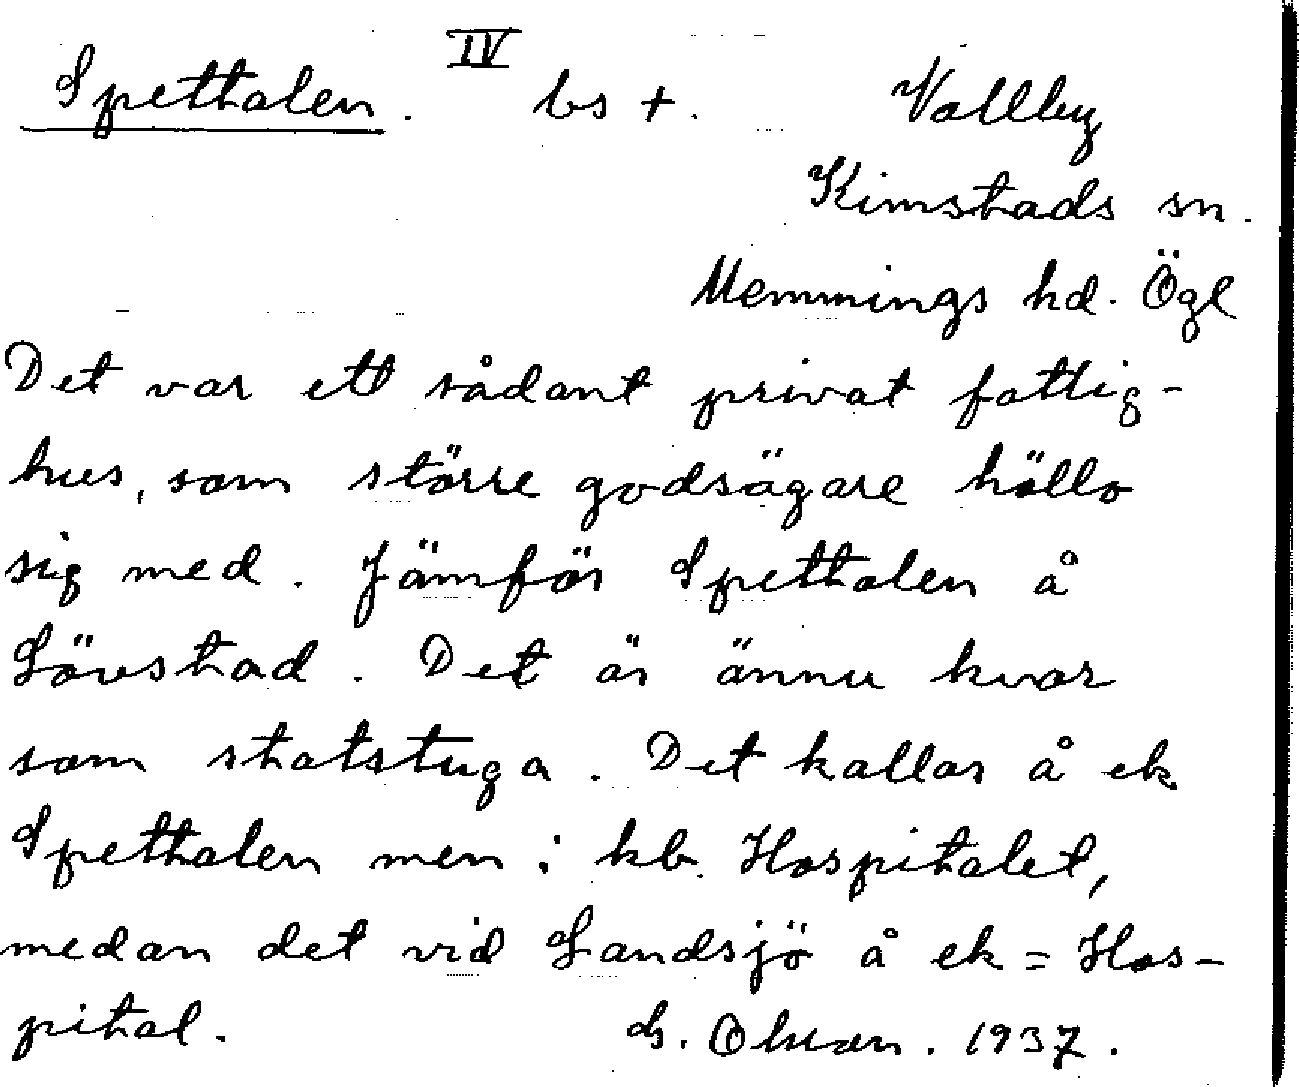 Spettalen. IV bs +. Vallby
Kimstads sn.
Memmings hd. Ögl
Det var ett sådant privat fattig-
hus, som större godsägare höllo
sig med. Jämför Spettalen å
Lövstad. Det är ännu kvar
som statstuga. Det kallas å ek
Spettalen men i kb. Hospitalet,
medan det vid Landsjö å ek = Hos-
pital. 1937.